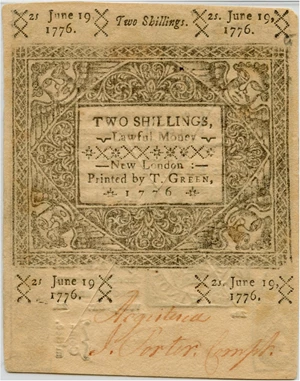 2s. June 19 1776. Two Shillings. 2s. June 19, 1776.
TWO SHILLINGS,
Lawful Money
New London :
Printed by T. GREEN,
1776
2s June 19 1776. 2s. June 19, 1776.
Registered
J. Porter Compt.